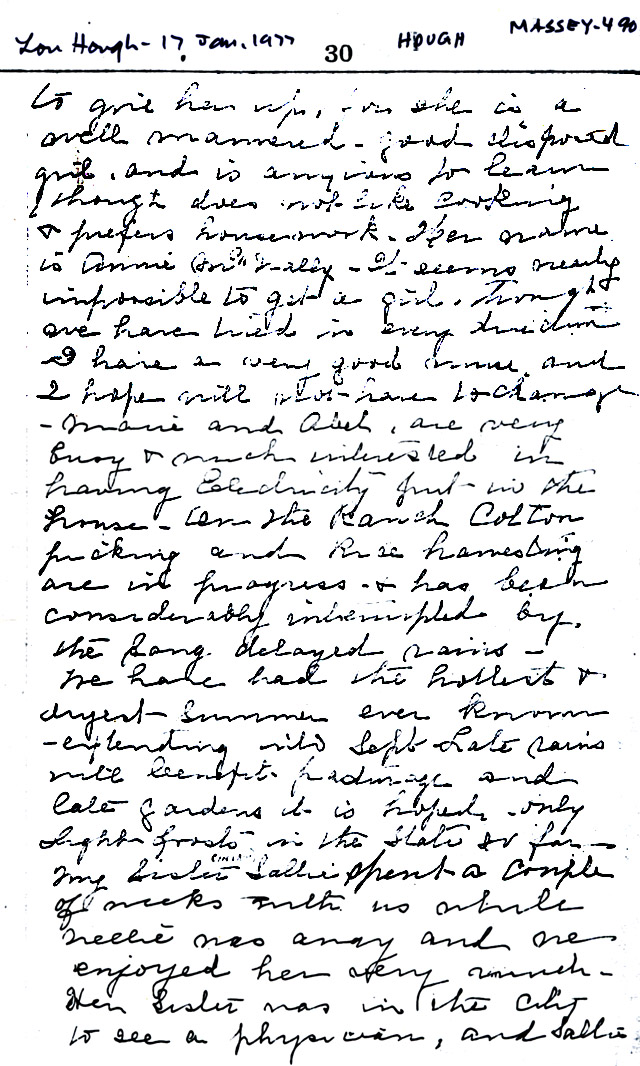 Lou Hough - 17 Jan. 1977 30 HOUGH MASSEY-490
to give her up, for she is a
well mannered - good disposed
girl, and is anxious to learn
though does not like cooking
& prefers housework - Her name
is Annie - It seems nearly
impossible to get a girl, though
we have tried in every direction
I have a very good nurse, and
I hope will not have to change
- Marie and Abel, are very
busy & much interested in
having Electricity put in the
house - On the Ranch Cotton
picking and Rice harvesting
are in progress - & has been
considerably interrupted by,
the long delayed rains -
We have had the hottest &
dryest Summer ever known
- extending into Sept - Late rains
will benefit pasturage and
late gardens it is hoped, only
light frosts in the State so far -
My Sister Sallie spent a couple
of weeks with us while
Nellie was away and we
enjoyed her very much -
Her Sister was in the City
to see a physician, and Sallie